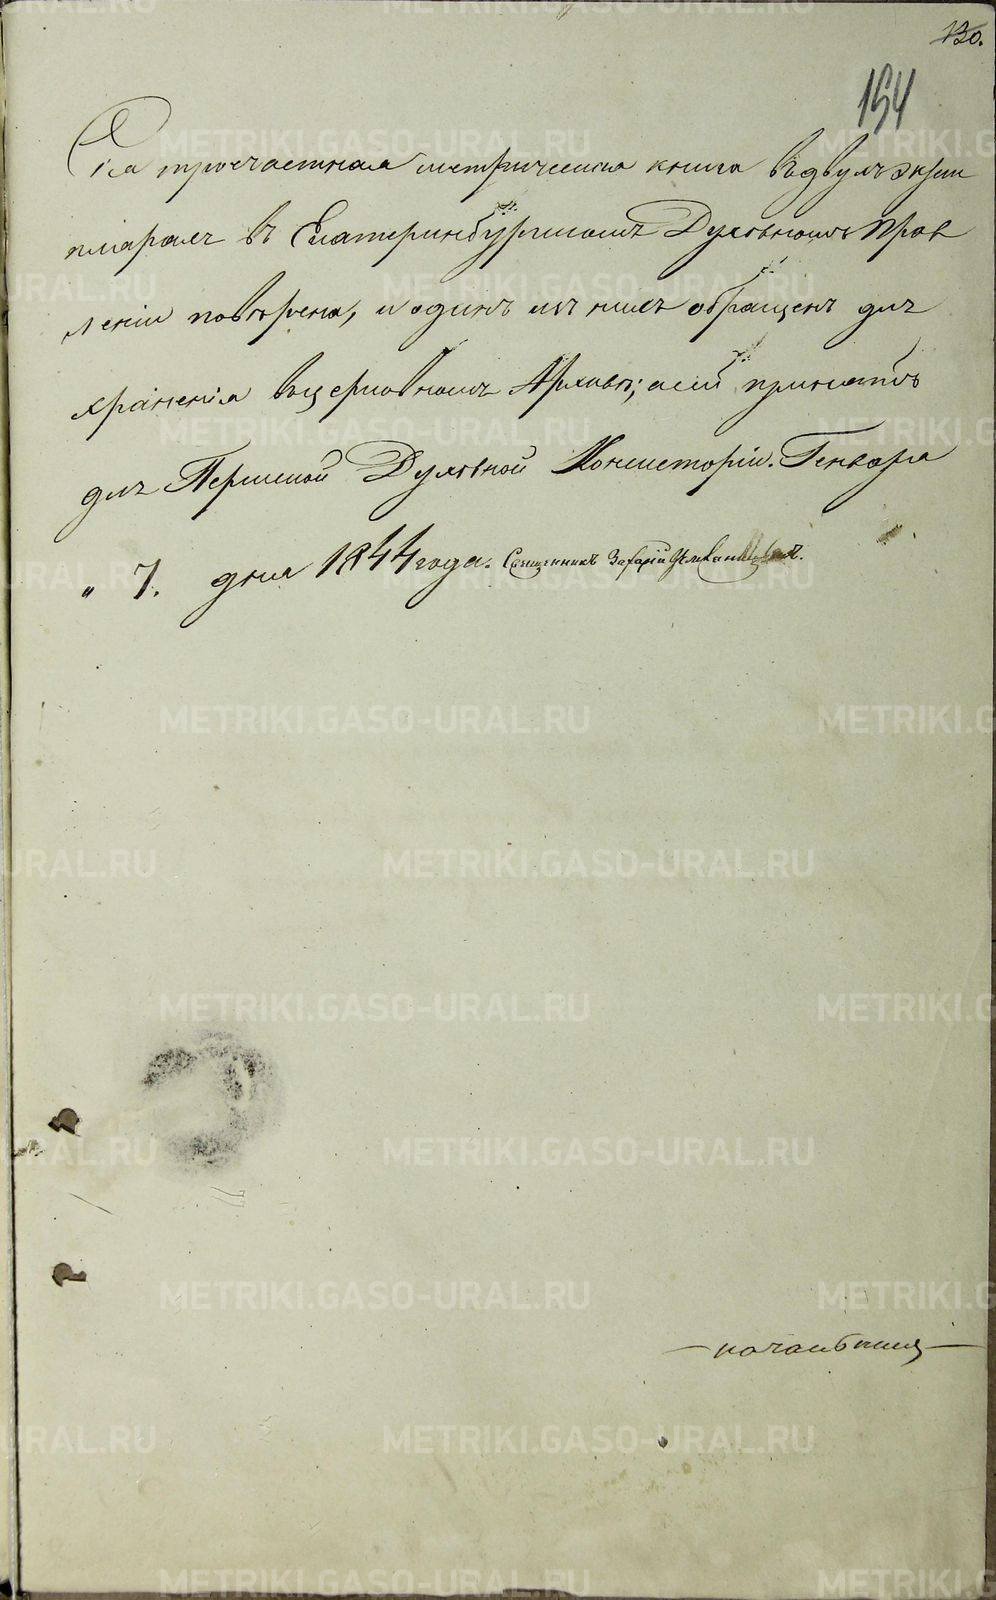 130.
154
Сія троечастная метрическая книга въ двухъ экзем
плярахъ въ Екатеринбургскомъ Духовномъ Прав
леніи повѣрена, и одинъ изъ нихъ обращенъ для
храненія въ церковномъ Архивѣ; а сей принятъ
для Пермской Духовной Консисторіи. Генваря
„ 7. дня 1844 года. Священникъ Захарій
METRIKI.GASO-URAL.RU